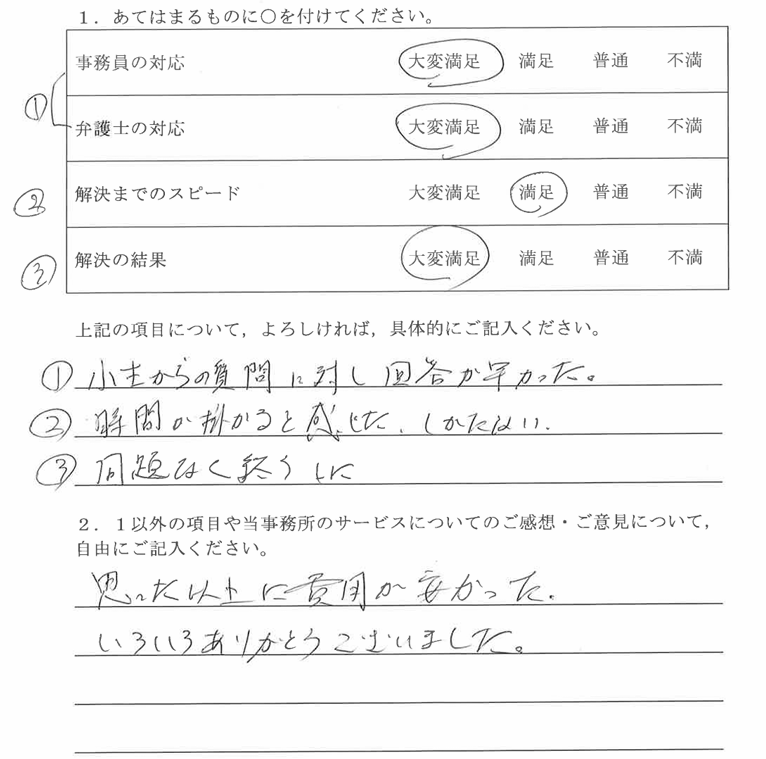 1．あてはまるものに○を付けてください。
事務員の対応 大変満足 満足 普通 不満
①
弁護士の対応 大変満足 満足 普通 不満
② 解決までのスピード 大変満足 満足 普通 不満
③ 解決の結果 大変満足 満足 普通 不満
上記の項目について，よろしければ，具体的にご記入ください。
① 小生からの質問に対し回答が早かった。
② 時間が掛かると感じた、しかたない.
③ 問題なく終うした
2．1以外の項目や当事務所のサービスについてのご感想・ご意見について，
自由にご記入ください。
思った以上に費用が安かった.
いろいろありがとうございました。